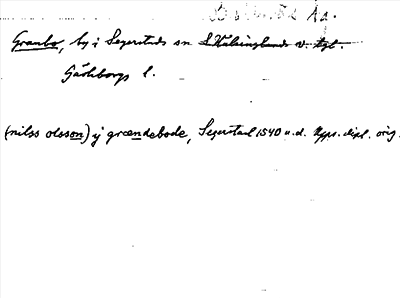 Bollnäs kg.
Granbo, by i Segerstads sn S. Hälsinglands v. tgl.
Gävleborgs l.
(nilss olsson) ÿ grændebode, Segerstad 1540 n.d. Upps. dipl. orig.